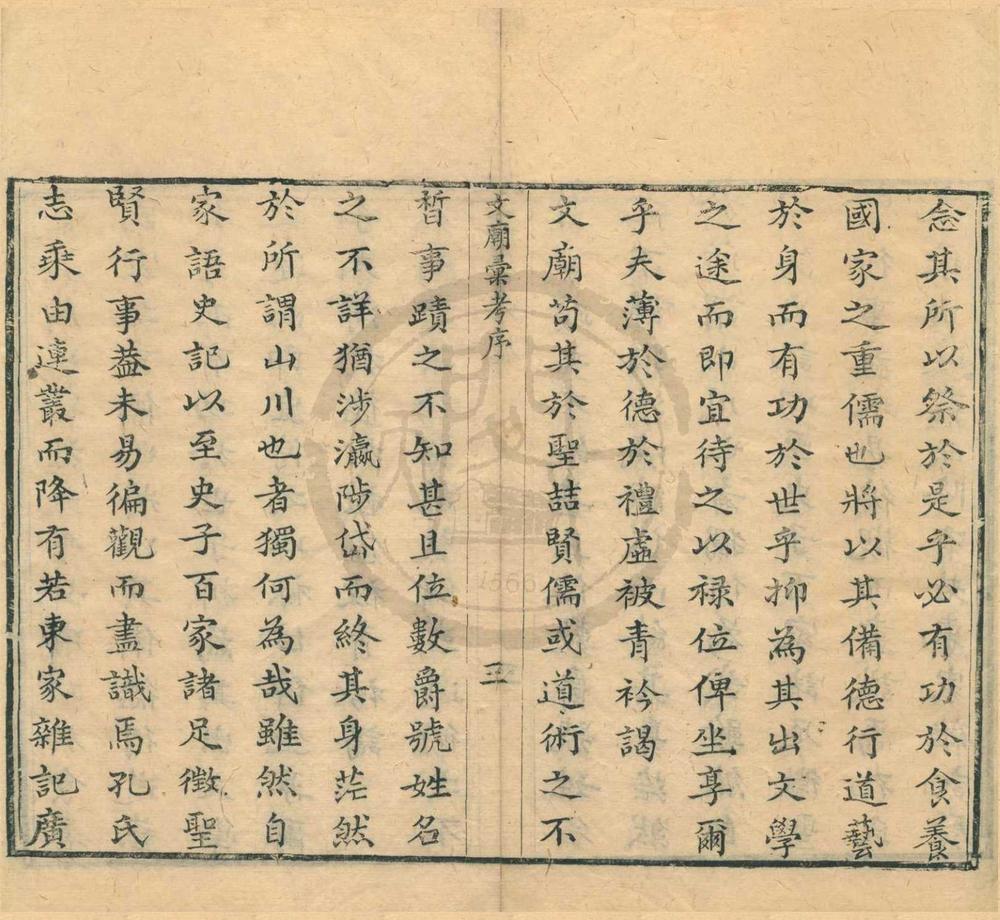 念其所以祭於是乎必有功於食養
國家之重儒也將以其備德行道藝
於身而有功於世乎抑為其出文學
之途而即宜待之以祿位俾坐享爾
乎夫薄於德於禮虛被青衿謁
文廟苟其於聖喆賢儒或道術之不
文廟彙考序 三
晳事蹟之不知甚且位數爵號姓名
之不詳猶涉瀛陟岱而終其身茫然
於所謂山川也者獨何為哉雖然自
家語史記以至史子百家諸足徵聖
賢行事葢未易徧觀而盡識焉孔氏
志乘由連叢而降有若東家雜記廣